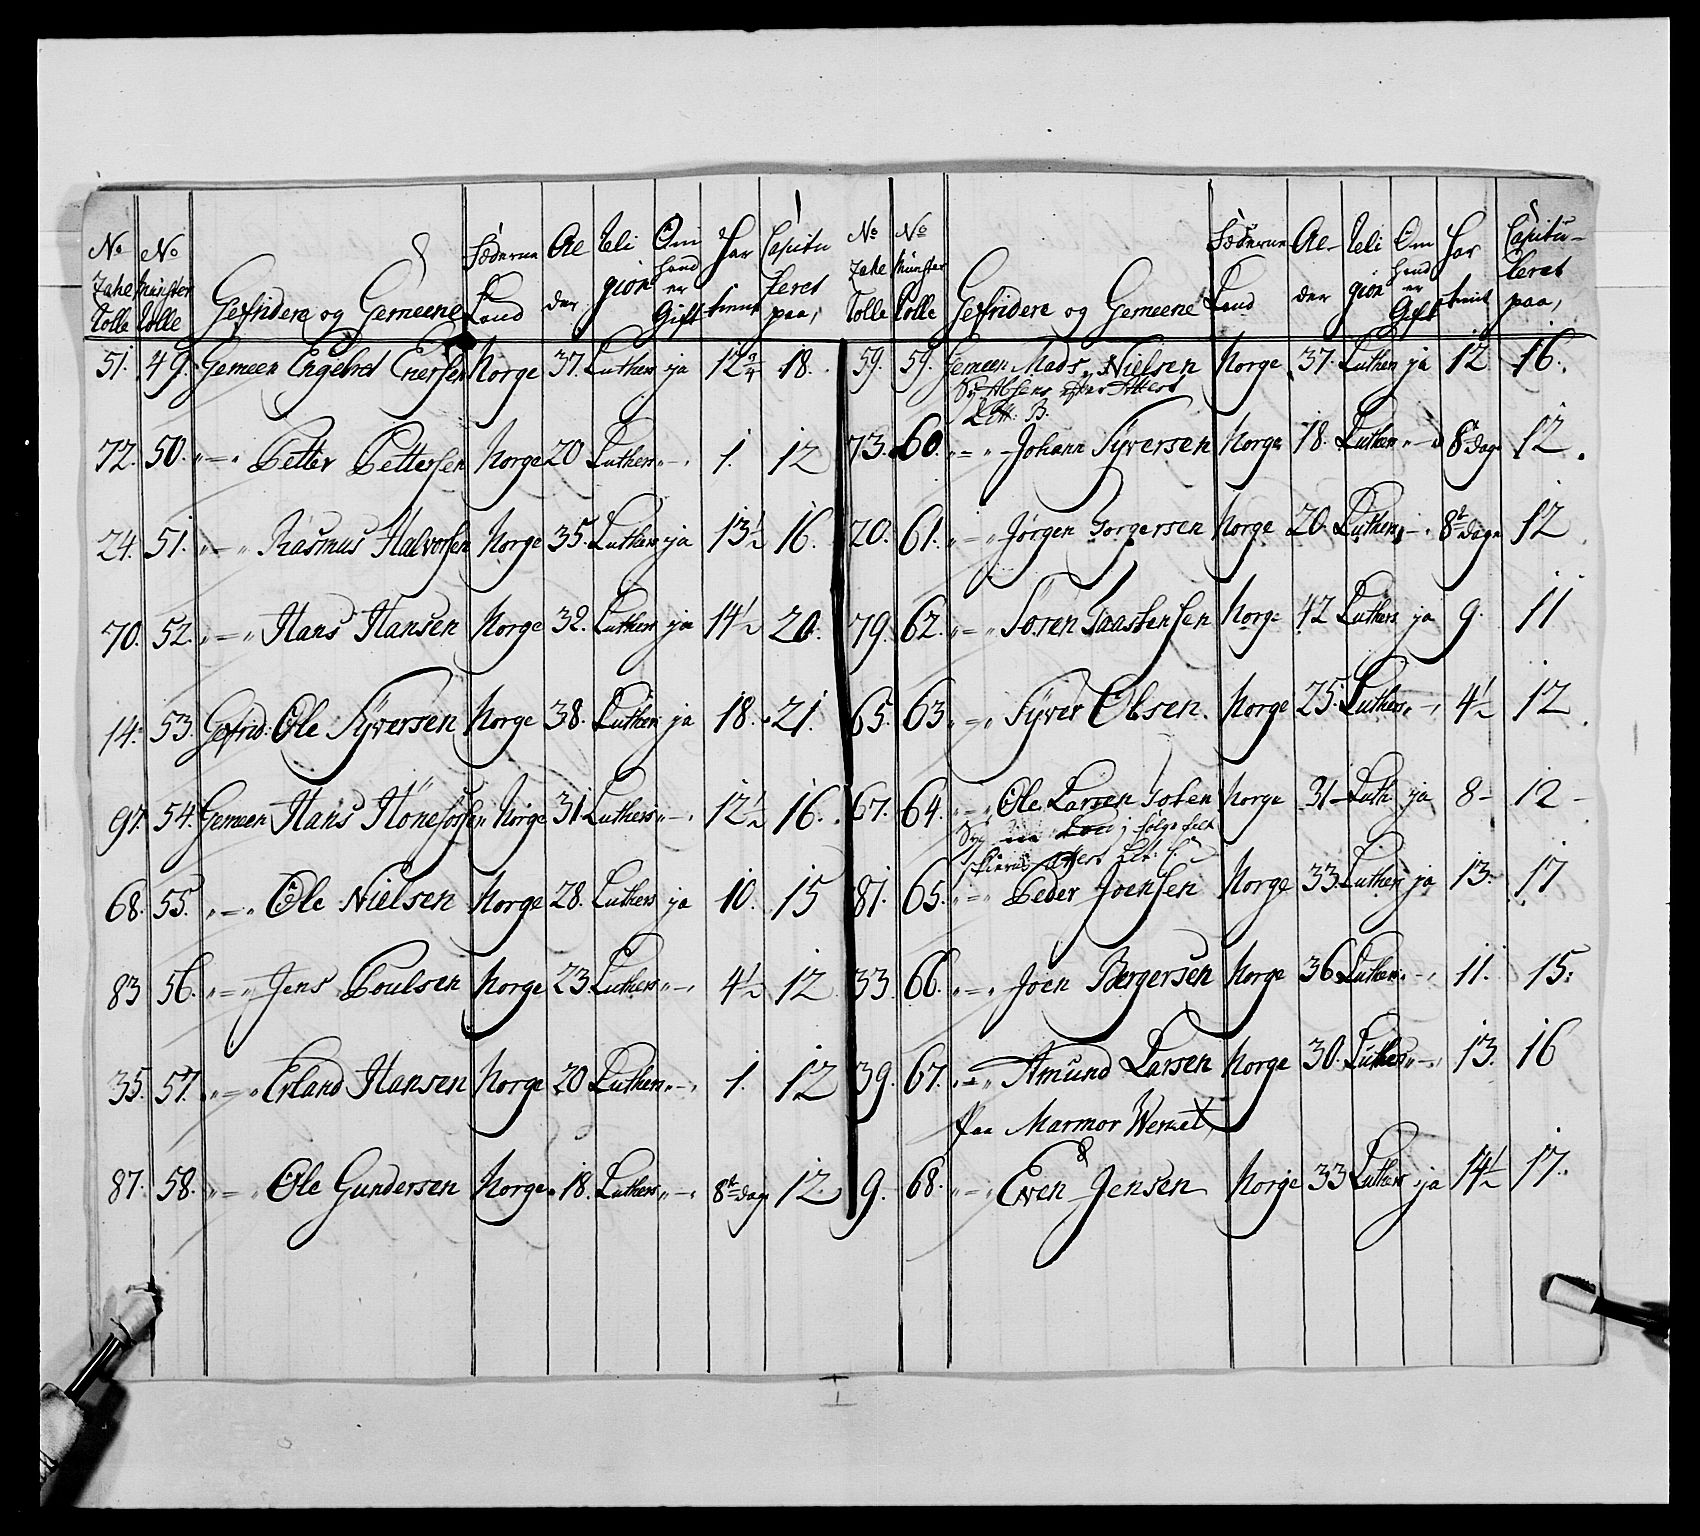 No Zahl Rolle | No Münster Rolle | Gefridere og Gemeene | Föderne Land | Alder | Religion | Om hand er Gift | Har tient | Capituleret paa,
51. 49. Gemeen Engebret Enersen Norge 37. Luthers ja 12 3/4 18.
72. 50. "=" Petter Pettersen Norge 20 Luthers "-" 1. 12
24. 51. "=" Rasmus Halvorsen Norge 35. Luthers ja 13 1/2 16.
70. 52. "=" Hans Hansen Norge 32. Luthers ja 14 1/2 20.
14. 53. Gefrid: Ole Syversen Norge 38. Luthers ja 18. 21.
97. 54. Gemeen Hans Hönefossen Norge 31. Luthers "-" 12 1/2 16.
68. 55. "=" Ole Nielsen Norge 28. Luthers ja 10. 15
83 56. "=" Jens Poulsen Norge 23 Luthers "-" 4 1/2 12
35. 57. "=" Erland Hansen Norge 20 Luthers "-" 1. 12
87. 58. "=" Ole Gundersen Norge 18. Luthers "-" 8te dage 12.
No Zahl Rolle | No Münster Rolle | Gefridere og Gemeene | Föderne Land | Alder | Religion | Om hand er Gift | Har tient | Capituleret paa,
59. 59. Gemeen Mads Nielsen Norge 37. Luthers ja 12 16.
Syg Absens efter Attest
Litt: B.
73. 60. "=" Johann Syversen Norge 18. Luthers "-" 8te dage 12.
20. 61. "=" Jörgen Borgersen Norge 20. Luthers "-" 8te dage 12
79. 62. "=" Sören Taastensen Norge 42 Luthers ja 9. 11
65. 63 "=" Syver Olsen. Norge 25. Luthers "-" 4 1/2 12
67. 64. "=" Ole Larsen Toten Norge 31 Luth ja 8 - 12 -
Syg fölge
Attest Litt:
81. 65. "=" Peder Joensen Norge 33. Luthers ja 13. 17
33 66. "=" Joen Bergersen Norge 36 Luthers "-" 11. 15.
39. 67. "=" Amund Larsen Norge 30. Luthers "-" 13. 16
Paa Marmor Wercket
9. 68. "=" Even Jensen Norge 33 Luthers ja 14 1/2 17.